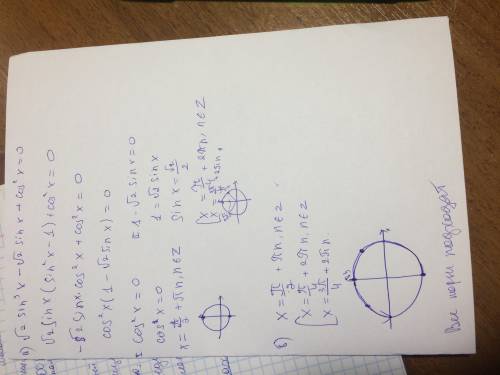 а) √2 sin³x - √2 sin x + cos²x = 0
√2 sin x (sin²x - 1) + cos²x = 0
-√2 sin x · cos²x + cos²x = 0
cos²x (1 - √2 sin x) = 0
cos²x = 0
1 - √2 sin x = 0
cos²x = 0
1 = √2 sin x
x = π/2 + πn, n∈Z
sin x = √2/2
[x = π/4 + 2πn, n∈Z
x = 3π/4 + 2πn
б) x = π/2 + πn, n∈Z
[x = π/4 + 2πn, n∈Z
x = 3π/4 + 2πn
Все корни подходят